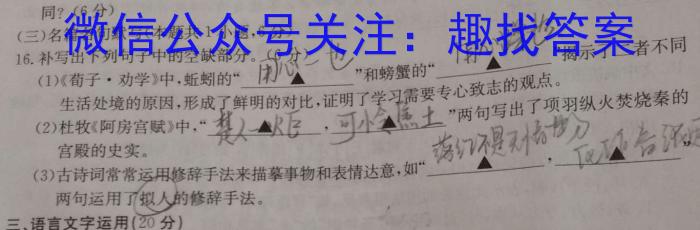 同？(6分)
微信公众号关注：趣找答案
(三)名
16.补写出下列句子中的空缺部分。(6分)
(1)《荀子·劝学》中，蚯蚓的“用心一也▲”和螃蟹的“▲”揭示了二者不同
生活处境的原因，形成了鲜明的对比，证明了学习需要专心致志的观点。
(2)杜牧《阿房宫赋》中，“楚人一炬▲，可怜焦土▲”两句写出了项羽纵火焚烧秦的
宫殿的史实。
(3)古诗词常常运用修辞手法来描摹事物和表情达意，如“▲，▲”
两句运用了拟人的修辞手法。
三、语言文字运用(20分)